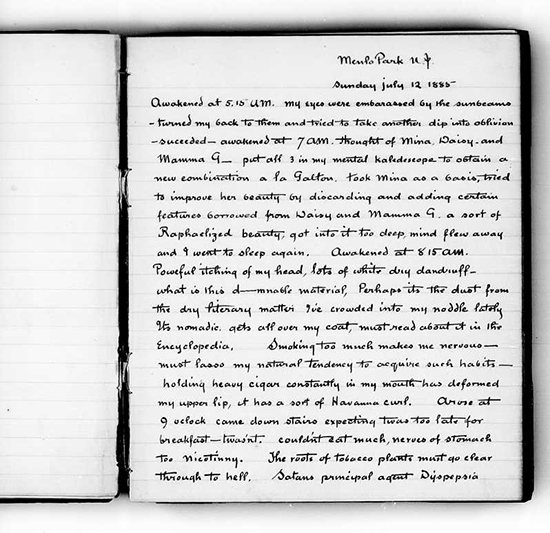 Menlo Park N.J.
Sunday July 12 1885
Awakened at 5.15 AM. my eyes were embarassed by the sunbeams
- turned my back to them and tried to take another dip into oblivion
- succeeded - awakened at 7 AM. thought of Mina, Daisy, and
Mamma G— put all 3 in my mental kaledescope to obtain a
new combination a la Galton. took Mina as a basis, tried
to improve her beauty by discarding and adding certain
features borrowed from Daisy and Mamma G. a sort of
Raphaelized beauty, got into it too deep, mind flew away
and I went to sleep again. Awakened at 8 15 AM.
Powerful itching of my head, lots of white dry dandruff—
what is this d—mnable material, Perhaps its the dust from
the dry literary matter I've crowded into my noddle lately
Its nomadic. gets all over my coat, must read about it in the
Encyclopedia. Smoking too much makes me nervous—
must lasso my natural tendency to acquire such habits—
holding heavy cigar constantly in my mouth has deformed
my upper lip, it has a sort of Havanna curl. Arose at
9 oclock came down stairs expecting twas too late for
breakfast— twasn't. couldn't eat much, nerves of stomach
too nicotinny. The roots of tobacco plants must go clear
through to hell. Satans principal agent Dyspepsia